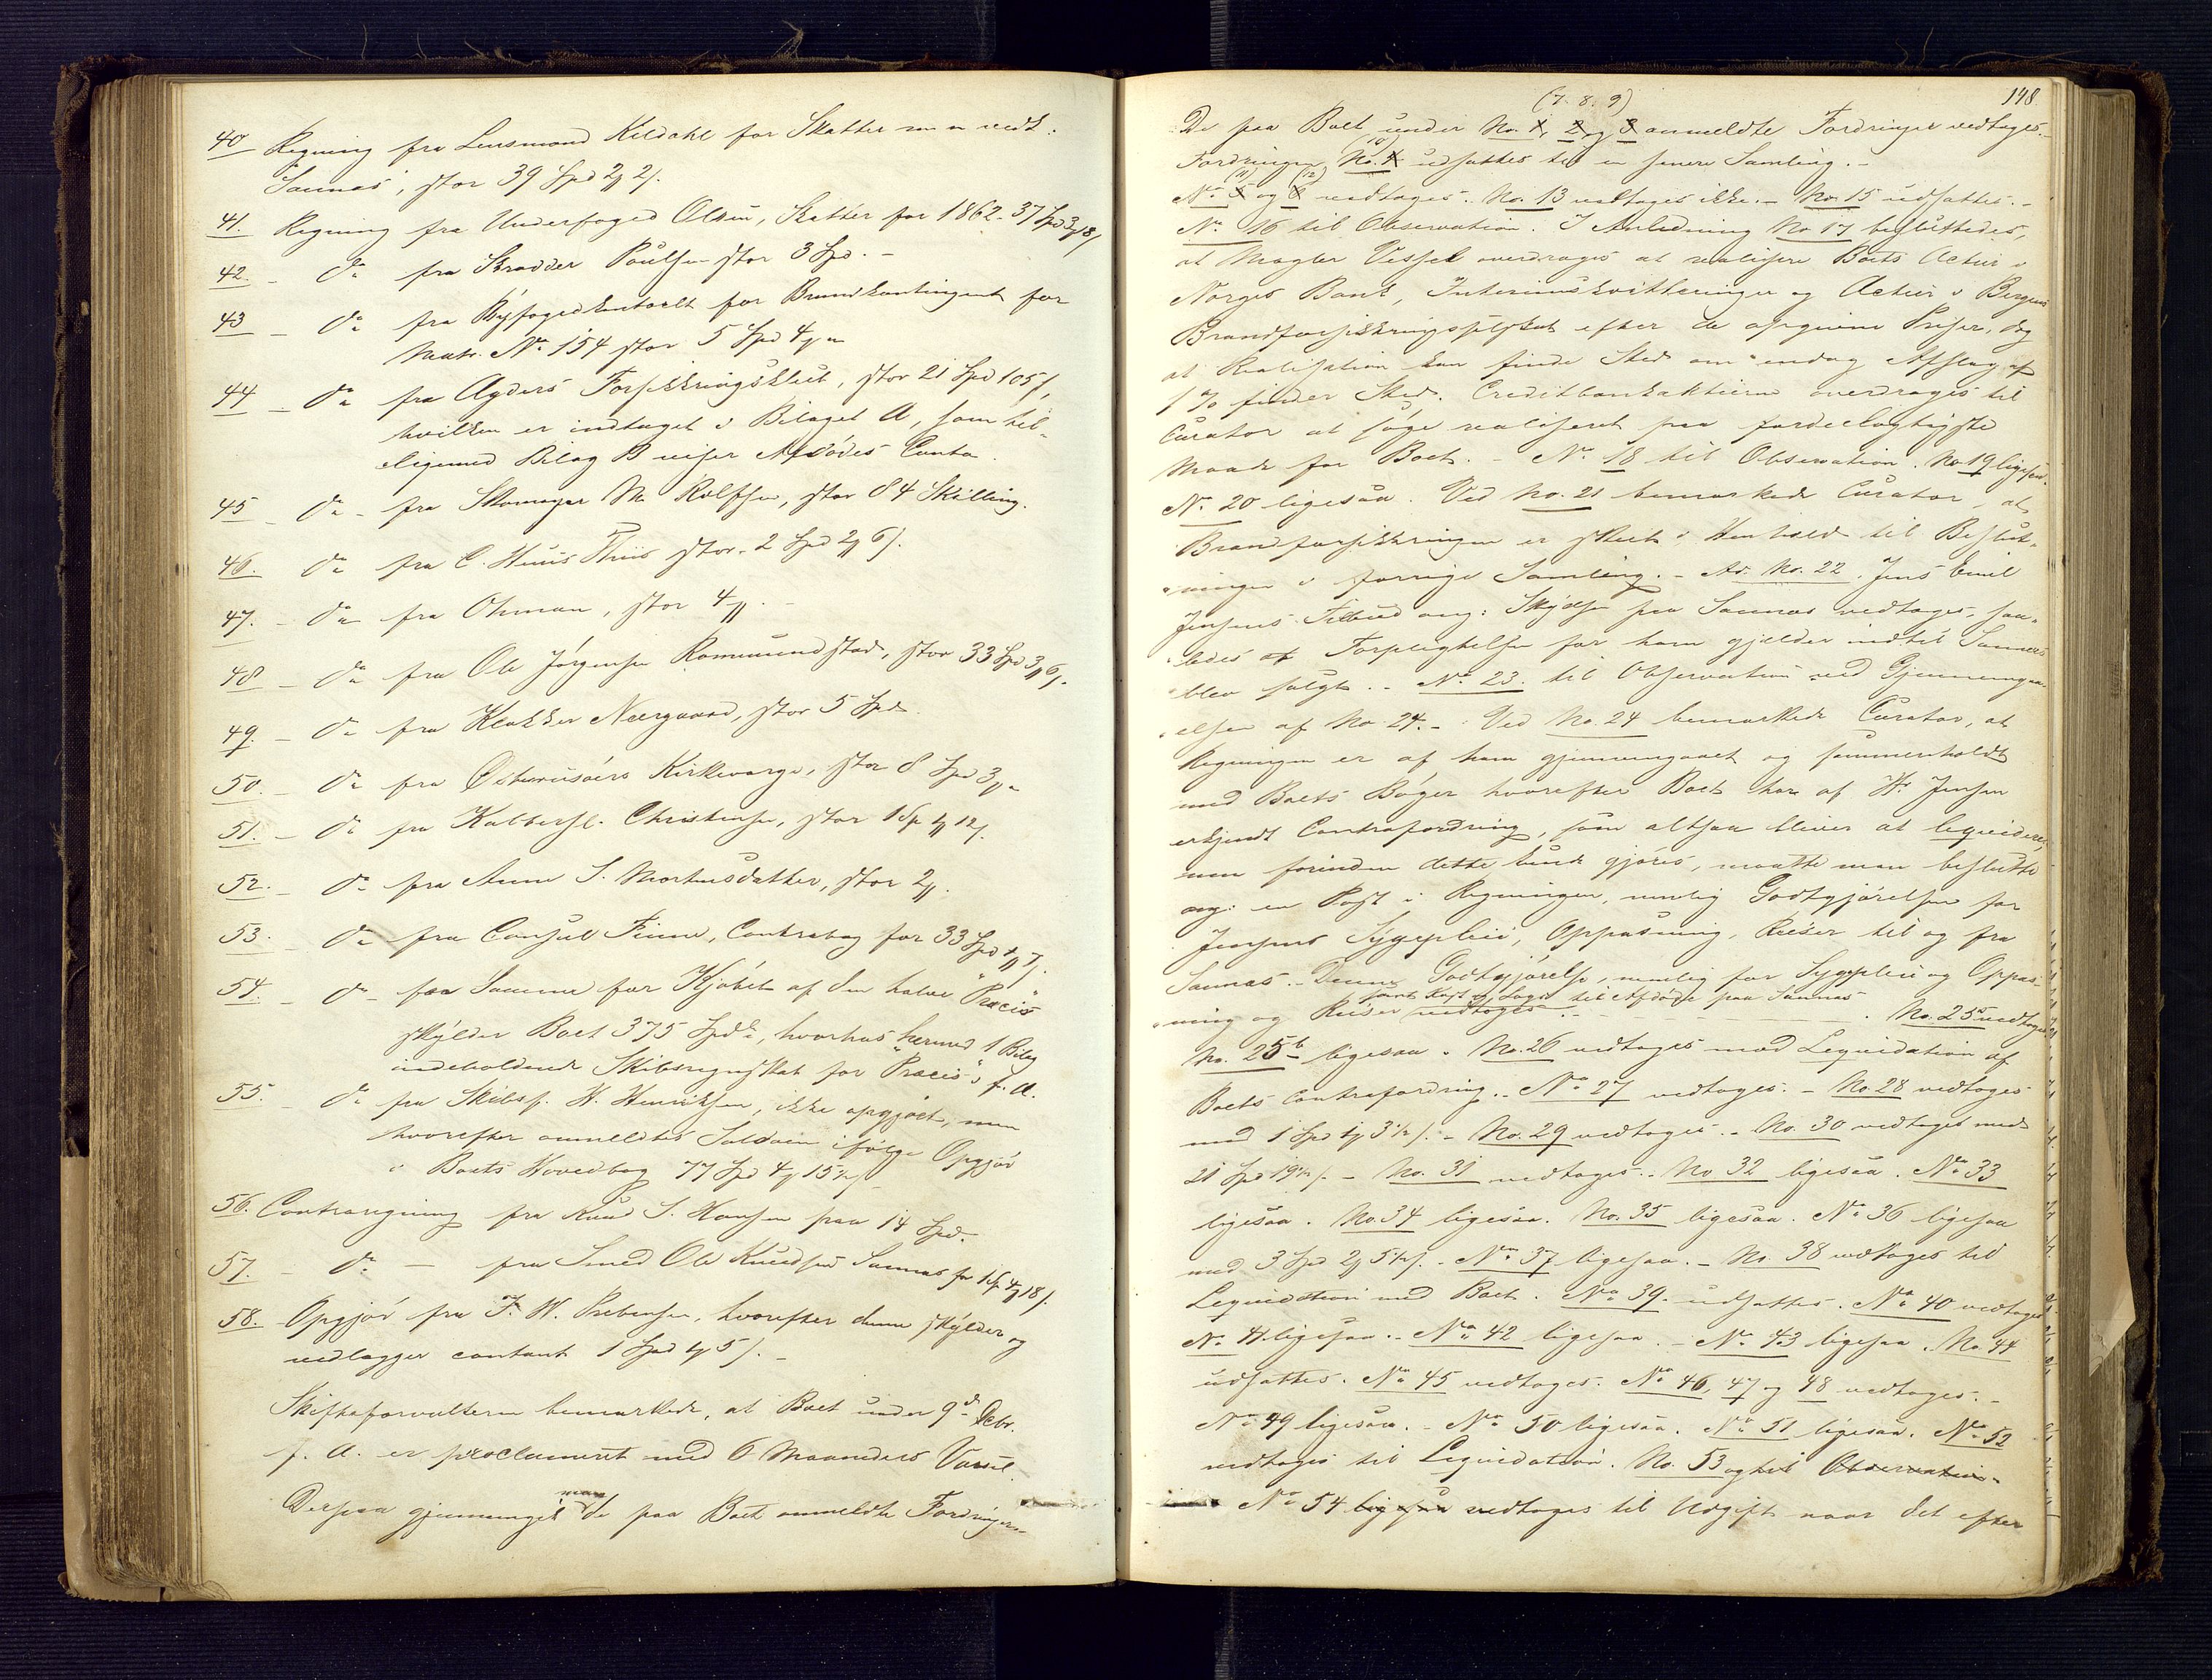 40 Regning fra Lensmand Keldahl for Skatter
Sannæs, stor 39 Spd 2 ort 2 s.
41. Regning fra Underfoged Olsen, Skatter for 1862. 37 Spd 3 ort 18 s
42. - Do fra Skrædder Poulsen stor 3 Spd. -
43 - Do fra Byfogedkontoret for Brandkontingent for
Matr. No 154 stor 5 Spd 4 ort "
44 - Do fra Agders Forsikringsklub, stor 21 Spd 105 s,
hvilken er indtaget i Bilaget A, som til-
ligemed Bilag B viser Afdødes Conto.
45 - Do - fra Skomager M. Rolfsen, stor 84 Skilling.
46. Do fra C. Huus Thiis stor - 2 Spd 2 ort 6 s.
47. - Do fra Ohman, stor 4 ort. -
48 - Do fra Ole Jørgensen Rommundstad, stor 33 Spd 3 ort 6 s.
49. - Do fra Klokker Neergaard, stor 5 Spd.
50. - Do fra Østerrisøers Kirkeværge, stor 8 Spd 3 ort "
51. - Do fra Christensen, stor 1 Sp 1 ort 12 s.
52. - Do fra Anne S. Mortensdatter, stor 2 ort.
53. - Do fra Consul Finne, Contrabog for 33 Spd 1 ort 7 s.
54. - Do - fra Samme for Kjøbet af den halve "Præcis"
skylder Boet 375 Spd, hvorhos hermed 1 Bilag
indeholdende Skibsregnskab for "Præcis" f. A.
55. - Do fra Skibsf. H. Henriksen, ikke opgjort, men
hvorefter anmeldtes Saldoen ifølge Opgjør
i Boets Hovedbog 77 Spd 4 ort 15 s
56. Contraregning fra Knud S. Hansen paa 14 Spd.
57. - Do - fra Smed Ole Knudsen Sannæs for 1 Sp 4 ort 18 s.
58. Opgjør fra F. W. Prebensen, hvorefter denne skylder og
vedlægger contant 1 Spd 1 ort 5 s. -
Skifteforvalteren bemærkede, at Boet under 9de Debr.
f. A. er proclameret med 6 Maaneders Varsel.
Derpaa gjennemgik man de paa Boet anmeldte Fordringer.
148
(7. 8. 9)
De paa Boet under No. 1, 2 og 3 anmeldte Fordringer vedtages.
(10)
Fordringen No. 4 udsattes til en senere Samling. -
(11) (12)
No 5 og 6 vedtages. No. 13 vedtages ikke. - No. 15 udsattes. -
No 16 til Observation. I Anledning No 17 besluttedes,
at Mægler Vessel overdrages at realisere Boets Actier i
Norges Bank, Interimskvitteringer og Actier i Bergens
Brandforsikringsselskab efter de opgivne Priser, dog
at Realisation kan finde Sted om endog Afslag af
1 % finder Sted. Creditbankaktierne overdrages til
Curator at søge realiseret paa fordeelagtigste
Maade for Boet. - No. 18 til Observation. No 19 ligesaa.
No. 20 ligesaa. Ved No. 21 bemærkede Curator, at
Brandforsikringen er skeet i Henhold til Beslut-
ningen i forrige Samling. - Ad. No. 22. Jens Emil
Jensens Tilbud ang: Skydsen paa Sannæs vedtages, saa-
ledes at Forpligtelsen for ham gjælder indtil Sannæs
blev solgt. - No. 23. til Observation ved Gjennemgaa-
elsen af No 24. - Ved No. 24 bemærkede Curator, at
Regningen er af ham gjennemgaaet og sammenholdt
med Boets Bøger hvorefter Boet har af Hr Jensen
erkjendt Contrafordring, som altsaa bliver at liquidere,
men forinden dette kunde gjøres, maatte man beslutte
ang: en Post i Regningen, nemlig Godtgjørelsen for
Jensens Sygepleie, Oppasning, Reiser til og fra
Sannæs. - Denne Godtgjørelse, nemlig for Sygepleie og Oppas-
samt Kost og Logi til Afdøde paa Sannæs
ning og Reiser vedtoges. - No. 25a vedtages
No. 25b ligesaa. No. 26 vedtages mod Liquidation af
Boets Contrafordring. - No 27 vedtages. - No. 28 vedtages
med 1 Spd 1 ort 3 1/2 s. - No. 29 vedtages. - No. 30 vedtages med
21 Spd 19 1/2 s. - No. 31 vedtages. - No 32 ligesaa. No 33
ligesaa. No. 34 ligesaa. No. 35 ligesaa. No 36 ligesaa
med 3 Spd 2 ort 5 1/2 s. - No 37 ligesaa. - No. 38 vedtages til
Liquidation med Boet. No 39. udsattes. No 40 vedtages
No. 41. ligesaa. - No 42 ligesaa. - No 43 ligesaa. No. 44
udsattes. No 45 vedtages. No 46, 47 og 48 vedtages. -
No 49 ligesaa. - No 50 ligesaa. No 51 ligesaa. No 52
vedtages til Liquidation. No. 53 og til Observation.
No 54 ligesaa vedtages til Udgift naar det efter